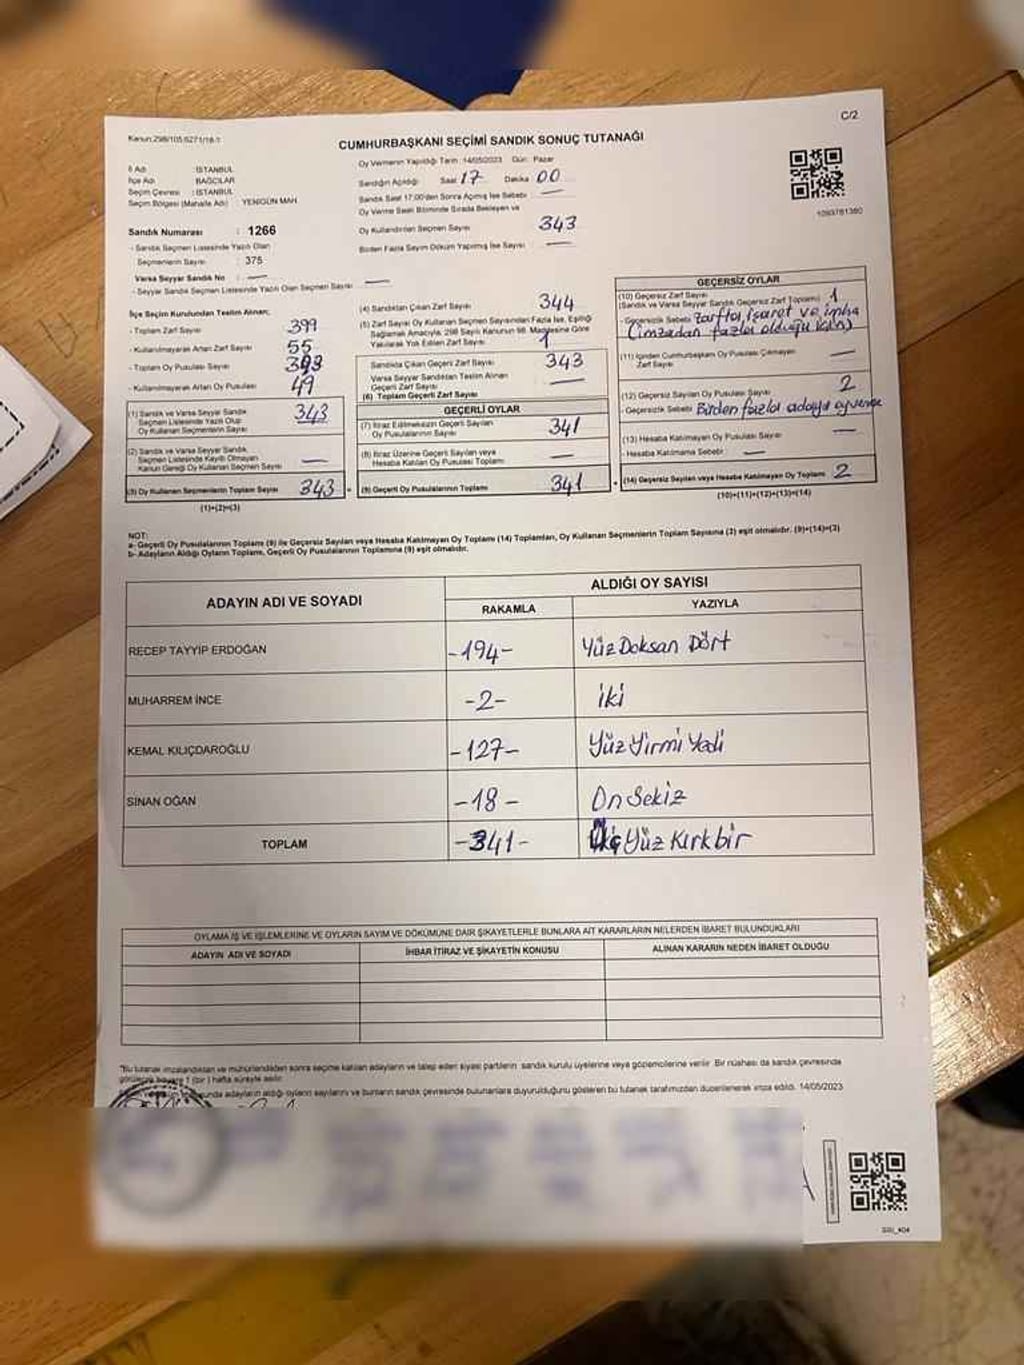 Kanun:298/105,6271/18-1
C/2
CUMHURBAŞKANI SEÇİMİ SANDIK SONUÇ TUTANAĞI
İl Adı : İSTANBUL
İlçe Adı : BAĞCILAR
Seçim Çevresi : İSTANBUL
Seçim Bölgesi (Mahalle Adı) : YENİGÜN MAH
Oy Vermenin Yapıldığı Tarih : 14/05/2023 Gün: Pazar
Sandığın Açıldığı Saat 17 Dakika 00
Sandık Saat 17:00'den Sonra Açılmış İse Sebebi : —
Oy Verme Saati Bitiminde Sırada Bekleyen ve
Oy Kullandırılan Seçmen Sayısı 343
Birden Fazla Sayım Döküm Yapılmış İse Sayısı : —
1093781380
Sandık Numarası : 1266
- Sandık Seçmen Listesinde Yazılı Olan
Seçmenlerin Sayısı : 375
Varsa Seyyar Sandık No : —
- Seyyar Sandık Seçmen Listesinde Yazılı Olan Seçmen Sayısı : —
İlçe Seçim Kurulundan Teslim Alınan;
- Toplam Zarf Sayısı 399
- Kullanılmayarak Artan Zarf Sayısı 55
- Toplam Oy Pusulası Sayısı 393
- Kullanılmayarak Artan Oy Pusulası 49
(1) Sandık ve Varsa Seyyar Sandık
Seçmen Listesinde Yazılı Olup
Oy Kullanan Seçmenlerin Sayısı 343
(2) Sandık ve Varsa Seyyar Sandık
Seçmen Listesinde Kayıtlı Olmayan
Kanun Gereği Oy Kullanan Seçmenlerin Sayısı —
(3) Oy Kullanan Seçmenlerin Toplam Sayısı 343
(1)+(2)=(3)
(4) Sandıktan Çıkan Zarf Sayısı 344
(5) Zarf Sayısı Oy Kullanan Seçmen Sayısından Fazla İse, Eşitliği
Sağlamak Amacıyla, 298 Sayılı Kanunun 98. Maddesine Göre
Yakılarak Yok Edilen Zarf Sayısı 1
Sandıkta Çıkan Geçerli Zarf Sayısı 343
Varsa Seyyar Sandıktan Teslim Alınan
Geçerli Zarf Sayısı —
(6) Toplam Geçerli Zarf Sayısı
GEÇERLİ OYLAR
(7) İtiraz Edilmeksizin Geçerli Sayılan
Oy Pusulalarının Sayısı 341
(8) İtiraz Üzerine Geçerli Sayılan veya
Hesaba Katılan Oy Pusulası Toplamı —
(9) Geçerli Oy Pusulalarının Toplamı 341
GEÇERSİZ OYLAR
(10) Geçersiz Zarf Sayısı 1
(Sandık ve Varsa Seyyar Sandık Geçersiz Zarf Toplamı)
- Geçersizlik Sebebi Zarfta işaret ve imha
(imzadan fazla olduğu için)
(11) İçinden Cumhurbaşkanı Oy Pusulası Çıkmayan
Zarf Sayısı —
(12) Geçersiz Sayılan Oy Pusulası Sayısı 2
- Geçersizlik Sebebi Birden fazla adaya oy verme
(13) Hesaba Katılmayan Oy Pusulası Sayısı —
- Hesaba Katılmama Sebebi —
(14) Geçersiz Sayılan veya Hesaba Katılmayan Oy Toplamı 2
(10)+(11)+(12)+(13)=(14)
NOT:
a- Geçerli Oy Pusulaların Toplamı (9) ile Geçersiz Sayılan veya Hesaba Katılmayan Oy Toplamı (14) Toplamları, Oy Kullanan Seçmenlerin Toplam Sayısına (3) eşit olmalıdır. (9)+(14)=(3)
b- Adayların Aldığı Oyların Toplamı, Geçerli Oy Pusulalarının Toplamına (9) eşit olmalıdır.
ADAYIN ADI VE SOYADI ALDIĞI OY SAYISI
RAKAMLA YAZIYLA
RECEP TAYYİP ERDOĞAN -194- Yüz Doksan Dört
MUHARREM İNCE -2- iki
KEMAL KILIÇDAROĞLU -127- Yüz Yirmi Yedi
SİNAN OĞAN -18- On Sekiz
TOPLAM -341- Üç Yüz Kırk bir
OYLAMA İŞ VE İŞLEMLERİNE VE OYLARIN SAYIM VE DÖKÜMÜNE DAİR ŞİKAYETLERLE BUNLARA AİT KARARLARIN NELERDEN İBARET BULUNDUKLARI
ADAYIN ADI VE SOYADI İHBAR İTİRAZ VE ŞİKAYETİN KONUSU ALINAN KARARIN NEDEN İBARET OLDUĞU
"Bu tutanak imzalandıktan ve mühürlendikten sonra seçime katılan adayların ve talep eden siyasi partilerin sandık kurulu üyelerine veya gözlemcilerine verilir. Bir nüshası da sandık çevresinde
görülecek bir yere 1 (bir) hafta süreyle asılır.
sunda adayların aldığı oyların sayılarını ve bunların sandık çevresinde bulunanlara duyurulduğunu gösteren bu tutanak tarafımızdan düzenlenerek imza edildi. 14/05/2023